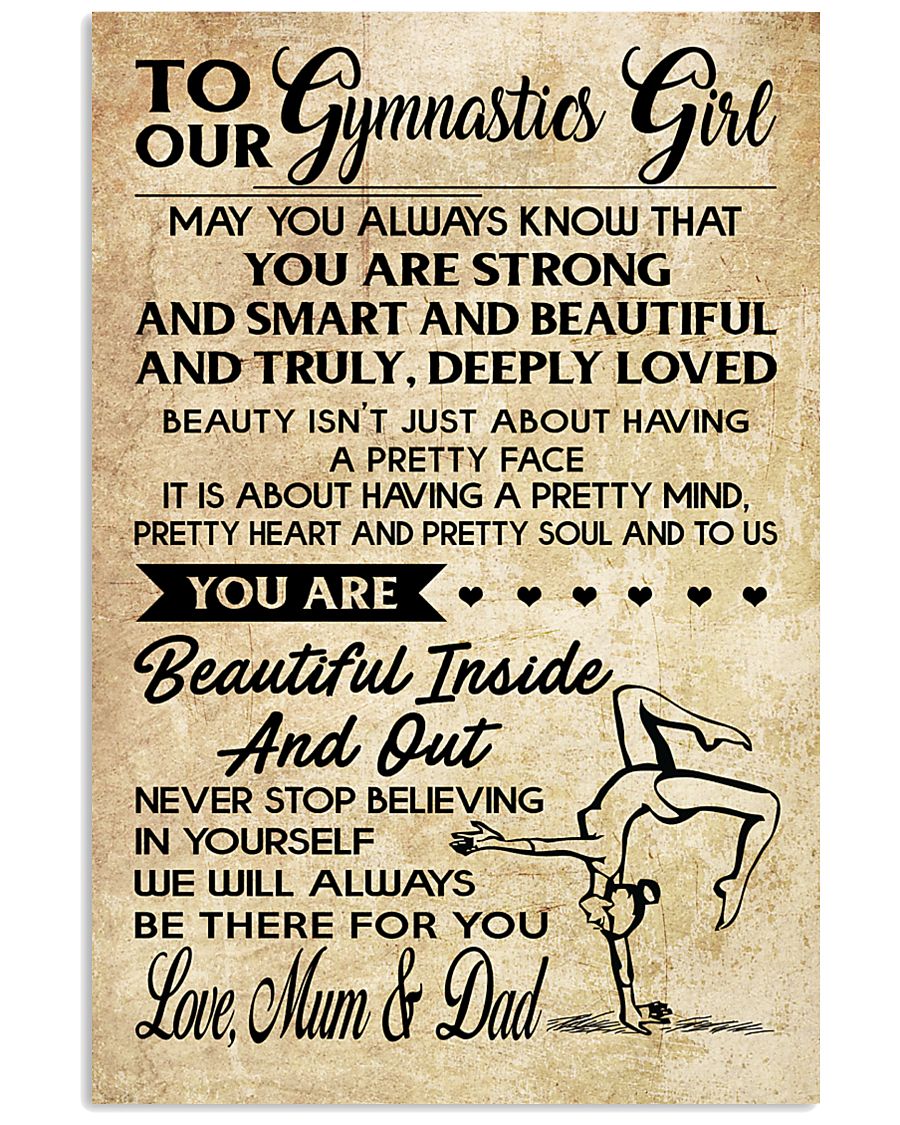 TO OUR Gymnastics Girl
MAY YOU ALWAYS KNOW THAT
YOU ARE STRONG
AND SMART AND BEAUTIFUL
AND TRULY, DEEPLY LOVED
BEAUTY ISN'T JUST ABOUT HAVING
A PRETTY FACE
IT IS ABOUT HAVING A PRETTY MIND,
PRETTY HEART AND PRETTY SOUL AND TO US
YOU ARE
Beautiful Inside
And Out
NEVER STOP BELIEVING
IN YOURSELF
WE WILL ALWAYS
BE THERE FOR YOU
Love, Mum & Dad